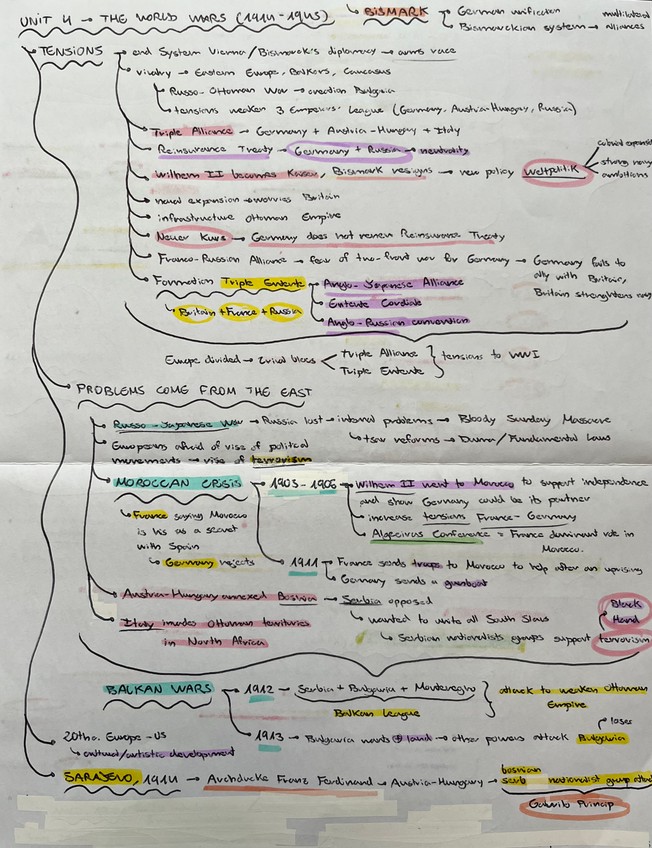 UNIT 4 - THE WORLD WARS (1914-1945)
BISMARK → German unification
→ Bismarckian system → multilateral alliances
TENSIONS → end System Vienna/Bismarck's diplomacy → arms race
rivalry → Eastern Europe, Balkans, Caucasus
Russo-Ottoman War → creation Bulgaria
tensions weaken 3 Emperors' League (Germany, Austria-Hungary, Russia)
Triple Alliance → Germany + Austria-Hungary + Italy
Reinsurance Treaty → Germany + Russia → neutrality
Wilhem II becomes Kaiser, Bismark resigns → new policy Weltpolitik
colonial expansion
strong navy
ambitions
naval expansion → worries Britain
infrastructure Ottoman Empire
Neuer Kurs → Germany does not renew Reinsurance Treaty
Franco-Russian Alliance → fear of two-front war for Germany → Germany fails to
ally with Britain,
Britain strenghtens navy
Formation Triple Entente → Anglo-Japanese Alliance
Entente Cordiale
Britain + France + Russia
Anglo-Russian convention
Europe divided → 2 rival blocs < Triple Alliance } tensions to WWI
Triple Entente
PROBLEMS COME FROM THE EAST
Russo-Japanese War → Russia lost → internal problems → Bloody Sunday Massacre
tsar reforms → Duma/Fundamental Laws
Europeans afraid of rise of political
movements → rise of terrorism
MOROCCAN CRISIS → 1905-1906 → Wilhem II went to Morocco to support independence
and show Germany could be its partner
France saying Morocco
is his as a secret
with Spain
increase tensions France-Germany
Algeciras Conference = France dominant role in
Morocco.
Germany rejects
1911 → France sends troops to Morocco to help after an uprising
Germany sends a gunboat
Austria-Hungary annexed Bosnia → Serbia opposed
wanted to unite all South Slavs
Black
Hand
Italy invades Ottoman territories
in North Africa
Serbian nationalists groups support terrorism
BALKAN WARS → 1912 → Serbia + Bulgaria + Montenegro } attack to weaken Ottoman
Empire
Balkan League
1913 → Bulgaria wants ⊕ land → other powers attack Bulgaria
loses
20thc. Europe - US
cultural/artistic development
SARAJEVO, 1914 → Archducke Franz Ferdinand → Austria-Hungary → bosnian
serb nationalist group attack
Gabrilo Princip